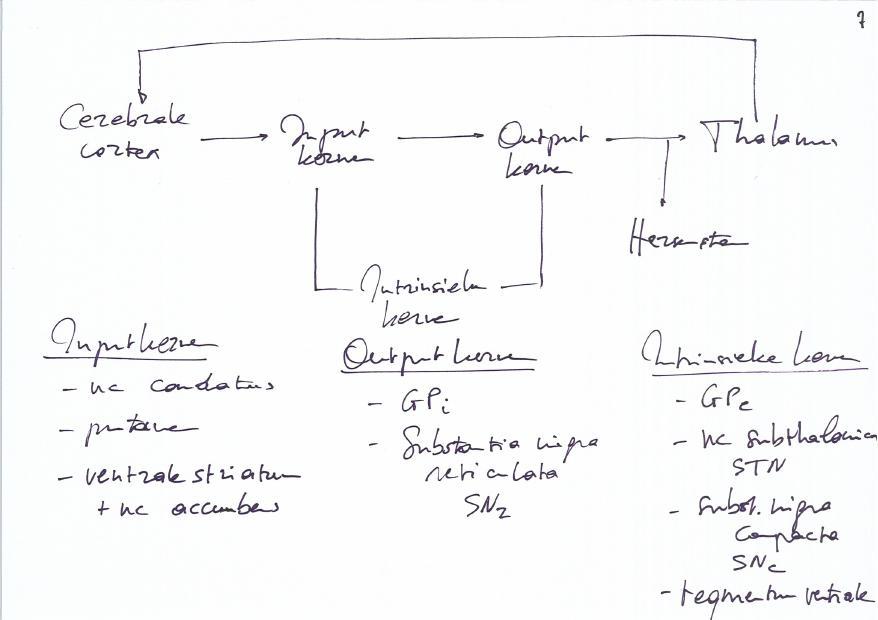 7
Cerebrale
cortex
Input
kerne
Output
kerne
Thalamus
Hersenstam
Intrinsieke
kerne
Input kerne
- nc caudatus
- putamen
- ventrale striatum
+ nc accumbens
Output kerne
- GPi
- Substantia nigra
reticulata
SNr
Intrinsieke kerne
- GPe
- nc subthalamicus
STN
- subst. nigra
Compacta
SNc
- tegmentum ventrale